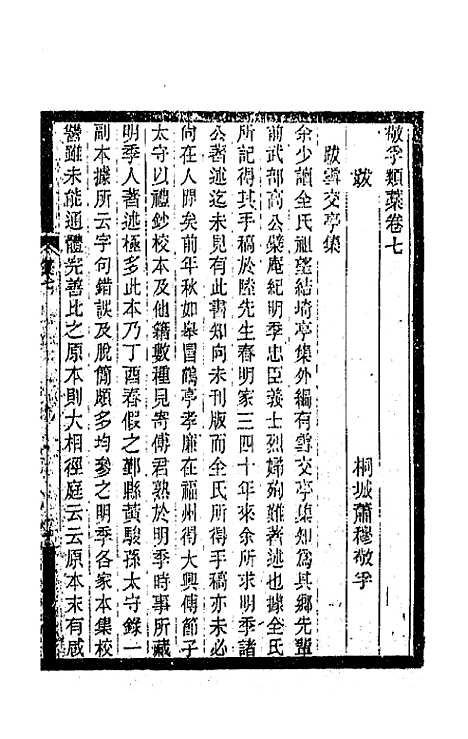 敬孚類藁卷七
桐城蕭穆敬孚
跋
跋雪交亭集
余少讀全氏祖望結埼亭集外編有雪交亭集知爲其鄉先輩
前武部高公檗庵紀明季忠臣義士烈婦殉難著述也據全氏
所記得其手稿於陸先生春明家三四十年來余所求明季諸
公著述迄未見有此書知向未刊版而全氏所得手稿亦未必
向在人閒矣前年秋如皋冒鶴亭孝廉在福州得大興傅節子
太守以禮鈔校本及他籍數種見寄傅君熟於明季時事所藏
明季人著述極多此本乃丁酉春假之鄞縣黃駿孫太守錄一
副本據所云字句錯誤及脫簡頗多均參之明季各家本集校
讐雖未能通體完善比之原本則大相徑庭云云原本末有咸